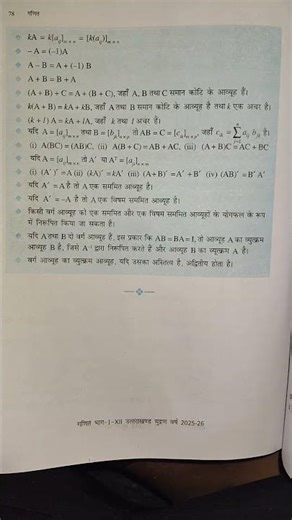 78 गणित
❖ kA = k[aᵢⱼ]ₘ × ₙ = [k(aᵢⱼ)]ₘ × ₙ
❖ –A = (–1)A
❖ A – B = A + (–1) B
❖ A + B = B + A
❖ (A + B) + C = A + (B + C), जहाँ A, B तथा C समान कोटि के आव्यूह हैं।
❖ k(A + B) = kA + kB, जहाँ A तथा B समान कोटि के आव्यूह है तथा k एक अचर है।
❖ (k + l) A = kA + lA, जहाँ k तथा l अचर हैं।
❖ यदि A = [aᵢⱼ]ₘ × ₙ तथा B = [bⱼₖ]ₙ × ₚ तो AB = C = [cᵢₖ]ₘ × ₚ, जहाँ cᵢₖ = ∑ⁿⱼ₌₁ aᵢⱼ bⱼₖ है।
❖ (i) A(BC) = (AB)C, (ii) A(B + C) = AB + AC, (iii) (A + B)C = AC + BC
❖ यदि A = [aᵢⱼ]ₘ × ₙ तो A′ या Aᵀ = [aⱼᵢ]ₙ × ₘ
❖ (i) (A′)′ = A (ii) (kA)′ = kA′ (iii) (A + B)′ = A′ + B′ (iv) (AB)′ = B′ A′
❖ यदि A′ = A है तो A एक सममित आव्यूह है।
❖ यदि A′ = –A है तो A एक विषम सममित आव्यूह है।
❖ किसी वर्ग आव्यूह को एक सममित और एक विषम सममित आव्यूहों के योगफल के रूप
में निरूपित किया जा सकता है।
❖ यदि A तथा B दो वर्ग आव्यूह हैं, इस प्रकार कि AB = BA = I, तो आव्यूह A का व्युत्क्रम
आव्यूह B है, जिसे A⁻¹ द्वारा निरूपित करते हैं और आव्यूह B का व्युत्क्रम A है।
❖ वर्ग आव्यूह का व्युत्क्रम आव्यूह, यदि उसका अस्तित्व है, अद्वितीय होता है।
गणित भाग-I-XII उत्तराखण्ड मुद्रण वर्ष 2025-26